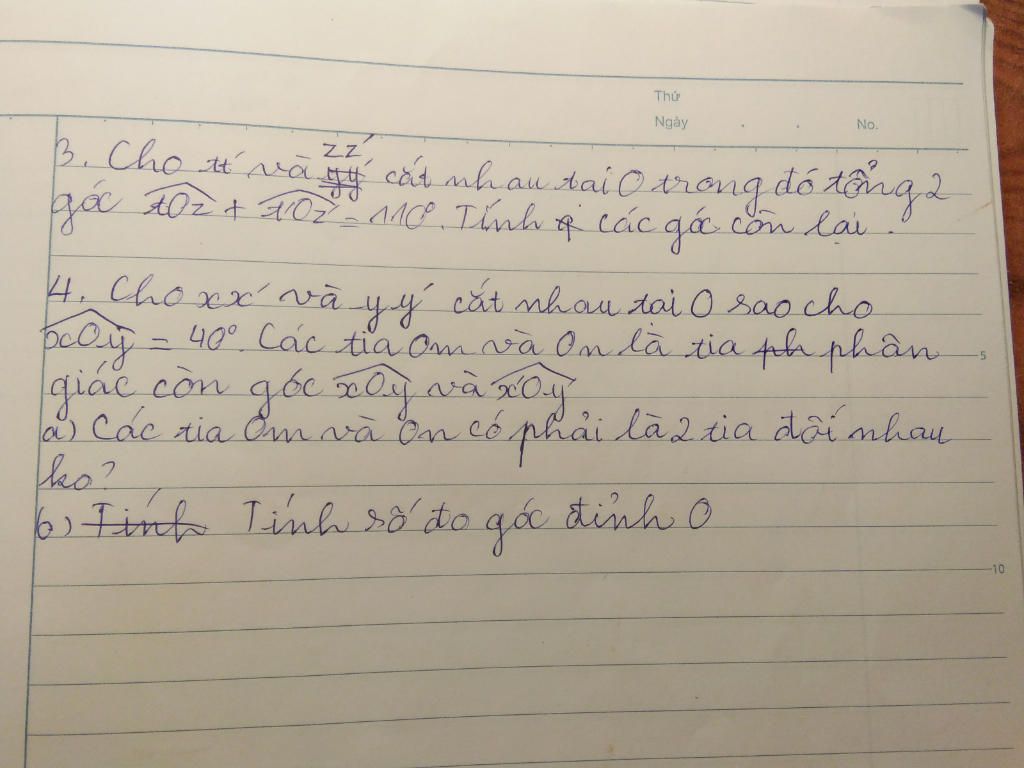 Thứ
Ngày . . No.
3. Cho tt' và zz' cắt nhau tại O trong đó tổng 2
góc tOz + t'Oz' = 110°. Tính các góc còn lại.
4. Cho xx' và yy' cắt nhau tại O sao cho
xOy = 40°. Các tia Om và On là tia phân
giác còn góc xOy và x'Oy'
a) Các tia Om và On có phải là 2 tia đối nhau
ko?
b) Tính số đo góc đỉnh O
5
10